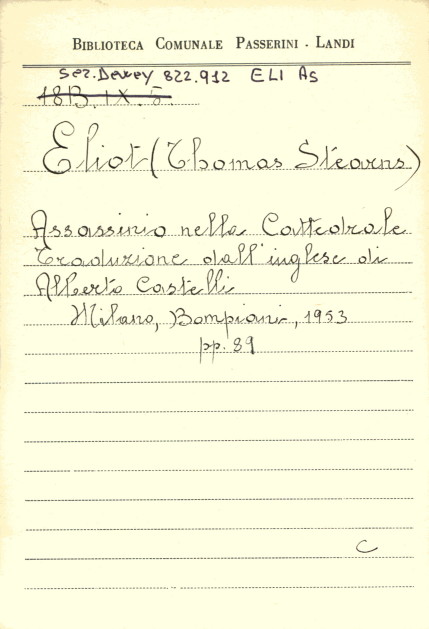 BIBLIOTECA COMUNALE PASSERINI - LANDI
Sez. Dewey 822.912 ELI As
18B. IX. 5.
Eliot (Thomas Stearns)
Assassinio nella Cattedrale
Traduzione dall'inglese di
Alberto Castelli
Milano, Bompiani, 1953
pp. 89
C